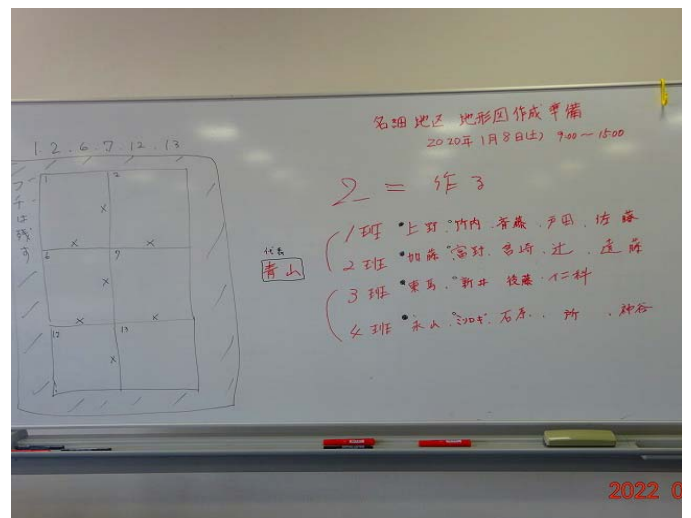 名細地区 地形図作成準備
2020年1月8日(土) 9:00～15:00
1.2.6.7.12.13
フチは残す
1 2
6 7
12 13
2 = 作る
代表
青山
1班 ・上野.°竹内.斉藤.戸田.佐藤
2班 ・加藤°富野.宮崎.辻.遠藤
3班 ・東島.°新井 後藤.仁科
4班 ・永山.石原..所.神谷
2022 0